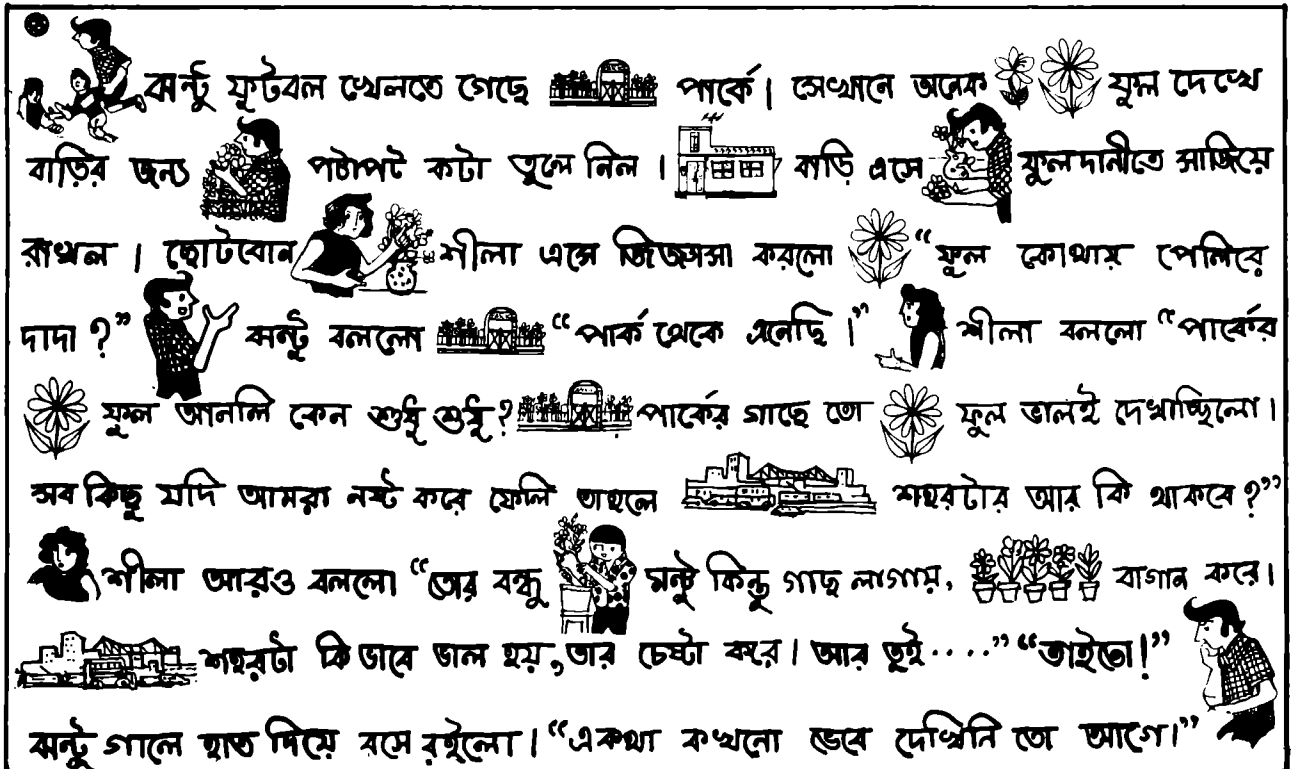 ঝন্টু ফুটবল খেলতে গেছে পার্কে। সেখানে অনেক ফুল দেখে
বাড়ির জন্য পটাপট কটা তুলে নিল। বাড়ি এসে ফুলদানীতে সাজিয়ে
রাখল। ছোটবোন শীলা এসে জিজ্ঞাসা করলো “ফুল কোথায় পেলিরে
দাদা?” ঝন্টু বললো “পার্ক থেকে এনেছি।” শীলা বললো “পার্কের
ফুল আনলি কেন শুধু শুধু? পার্কের গাছে তো ফুল ভালই দেখাচ্ছিলো।
সব কিছু যদি আমরা নষ্ট করে ফেলি তাহলে শহরটার আর কি থাকবে?”
শীলা আরও বললো “তোর বন্ধু মন্টু কিন্তু গাছ লাগায়, বাগান করে।
শহরটা কি ভাবে ভাল হয়, তার চেষ্টা করে। আর তুই....” “তাইতো!”
ঝন্টু গালে হাত দিয়ে বসে রইলো। “একথা কখনো ভেবে দেখিনি তো আগে।”